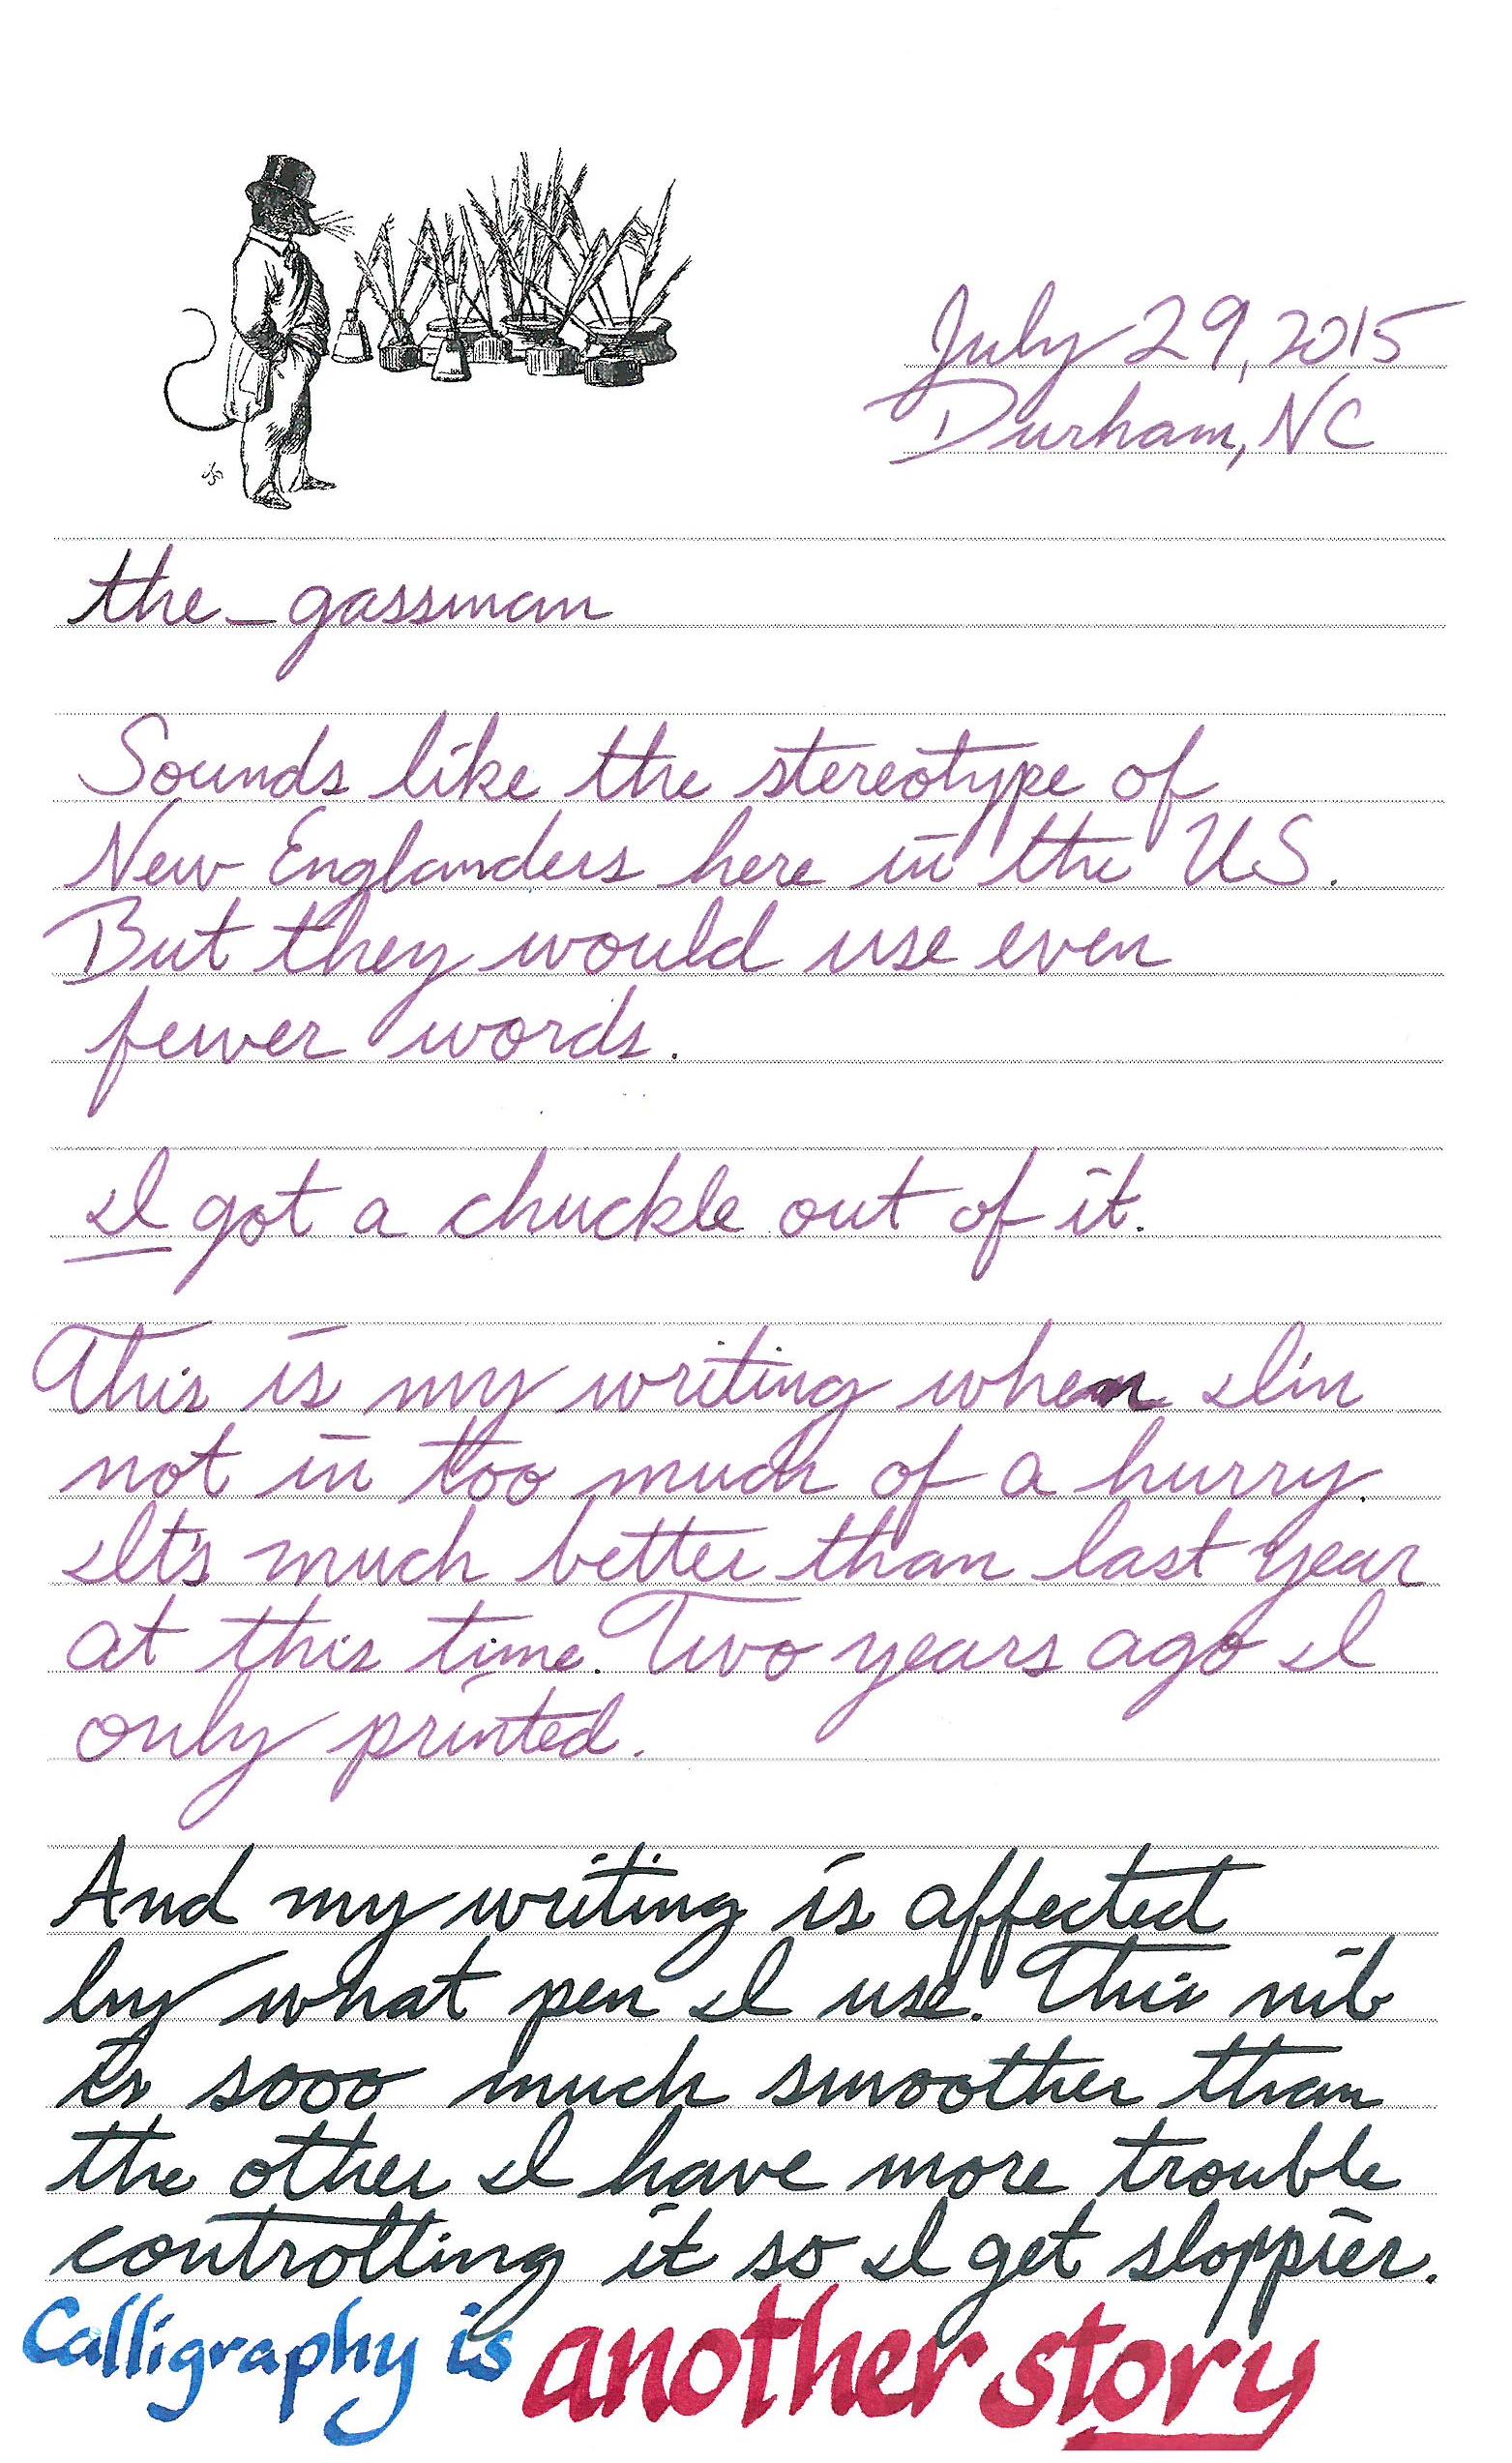 July 29, 2015
Durham, NC
the_gassman
Sounds like the stereotype of
New Englanders here in the US.
But they would use even
fewer words.
I got a chuckle out of it.
This is my writing when I'm
not in too much of a hurry.
It's much better than last year
at this time. Two years ago I
only printed.
And my writing is affected
by what pen I use. This nib
is sooo much smoother than
the other I have more trouble
controlling it so I get sloppier.
Calligraphy is another story